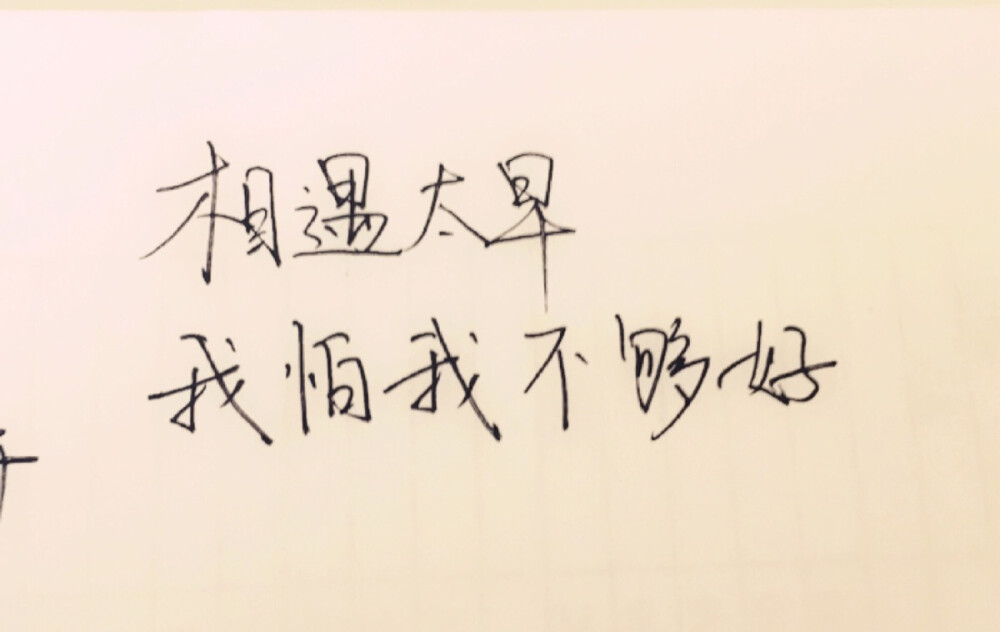 相遇太早
我怕我不够好